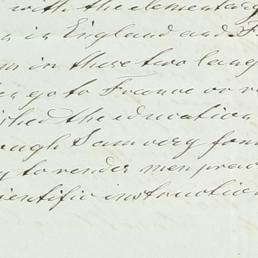 with the elementary
in England and F
in these two lang
go to France or
the education
ough I am very fon
to render men prac
ientific instruction